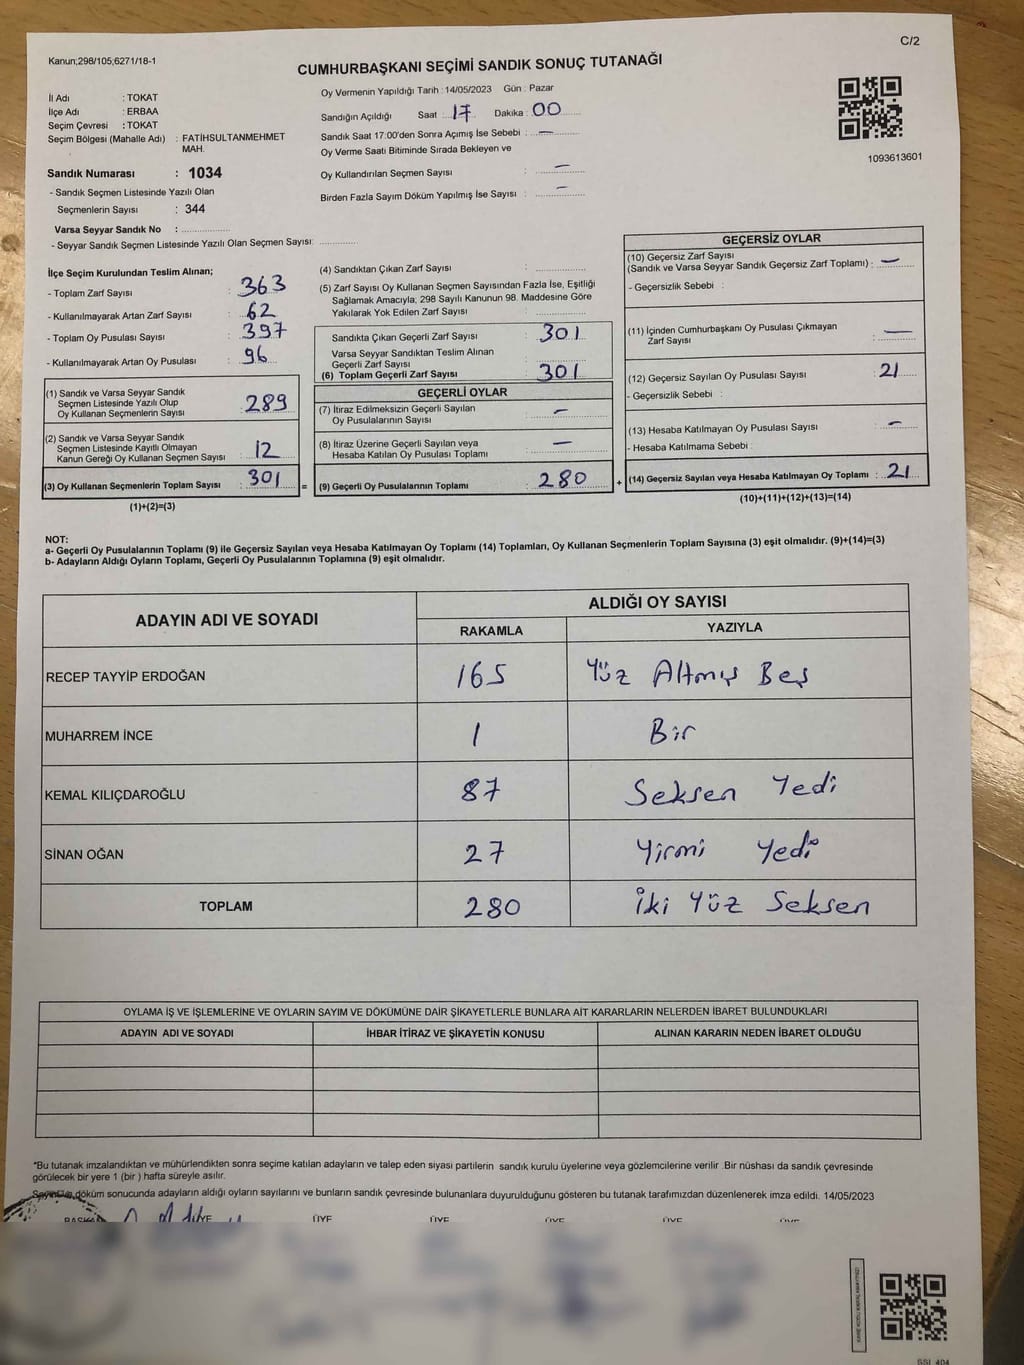 C/2
Kanun;298/105;6271/18-1
CUMHURBAŞKANI SEÇİMİ SANDIK SONUÇ TUTANAĞI
İl Adı : TOKAT
İlçe Adı : ERBAA
Seçim Çevresi : TOKAT
Seçim Bölgesi (Mahalle Adı) : FATİHSULTANMEHMET
MAH.
Sandık Numarası : 1034
- Sandık Seçmen Listesinde Yazılı Olan
Seçmenlerin Sayısı : 344
Varsa Seyyar Sandık No :
- Seyyar Sandık Seçmen Listesinde Yazılı Olan Seçmen Sayısı:
Oy Vermenin Yapıldığı Tarih : 14/05/2023 Gün : Pazar
Sandığın Açıldığı Saat 17 Dakika : 00
Sandık Saat 17:00'den Sonra Açımış İse Sebebi : —
Oy Verme Saati Bitiminde Sırada Bekleyen ve
Oy Kullandırılan Seçmen Sayısı : —
Birden Fazla Sayım Döküm Yapılmış İse Sayısı : —
1093613601
İlçe Seçim Kurulundan Teslim Alınan;
- Toplam Zarf Sayısı : 363
- Kullanılmayarak Artan Zarf Sayısı : 62
- Toplam Oy Pusulası Sayısı : 397
- Kullanılmayarak Artan Oy Pusulası : 96
(1) Sandık ve Varsa Seyyar Sandık
Seçmen Listesinde Yazılı Olup
Oy Kullanan Seçmenlerin Sayısı : 289
(2) Sandık ve Varsa Seyyar Sandık
Seçmen Listesinde Kayıtlı Olmayan
Kanun Gereği Oy Kullanan Seçmen Sayısı : 12
(3) Oy Kullanan Seçmenlerin Toplam Sayısı : 301 =
(1)+(2)=(3)
(4) Sandıktan Çıkan Zarf Sayısı :
(5) Zarf Sayısı Oy Kullanan Seçmen Sayısından Fazla İse, Eşitliği
Sağlamak Amacıyla; 298 Sayılı Kanunun 98. Maddesine Göre
Yakılarak Yok Edilen Zarf Sayısı :
Sandıkta Çıkan Geçerli Zarf Sayısı : 301
Varsa Seyyar Sandıktan Teslim Alınan
Geçerli Zarf Sayısı :
(6) Toplam Geçerli Zarf Sayısı : 301
GEÇERLİ OYLAR
(7) İtiraz Edilmeksizin Geçerli Sayılan
Oy Pusulalarının Sayısı : —
(8) İtiraz Üzerine Geçerli Sayılan veya
Hesaba Katılan Oy Pusulası Toplamı : —
(9) Geçerli Oy Pusulalarının Toplamı : 280 +
GEÇERSİZ OYLAR
(10) Geçersiz Zarf Sayısı
(Sandık ve Varsa Seyyar Sandık Geçersiz Zarf Toplamı) : —
- Geçersizlik Sebebi :
(11) İçinden Cumhurbaşkanı Oy Pusulası Çıkmayan
Zarf Sayısı : —
(12) Geçersiz Sayılan Oy Pusulası Sayısı : 21
- Geçersizlik Sebebi :
(13) Hesaba Katılmayan Oy Pusulası Sayısı : —
- Hesaba Katılmama Sebebi :
(14) Geçersiz Sayılan veya Hesaba Katılmayan Oy Toplamı : 21
(10)+(11)+(12)+(13)=(14)
NOT:
a- Geçerli Oy Pusulalarının Toplamı (9) ile Geçersiz Sayılan veya Hesaba Katılmayan Oy Toplamı (14) Toplamları, Oy Kullanan Seçmenlerin Toplam Sayısına (3) eşit olmalıdır. (9)+(14)=(3)
b- Adayların Aldığı Oyların Toplamı, Geçerli Oy Pusulalarının Toplamına (9) eşit olmalıdır.
ADAYIN ADI VE SOYADI ALDIĞI OY SAYISI
RAKAMLA YAZIYLA
RECEP TAYYİP ERDOĞAN 165 Yüz Altmış Beş
MUHARREM İNCE 1 Bir
KEMAL KILIÇDAROĞLU 87 Seksen Yedi
SİNAN OĞAN 27 Yirmi Yedi
TOPLAM 280 İki Yüz Seksen
OYLAMA İŞ VE İŞLEMLERİNE VE OYLARIN SAYIM VE DÖKÜMÜNE DAİR ŞİKAYETLERLE BUNLARA AİT KARARLARIN NELERDEN İBARET BULUNDUKLARI
ADAYIN ADI VE SOYADI İHBAR İTİRAZ VE ŞİKAYETİN KONUSU ALINAN KARARIN NEDEN İBARET OLDUĞU
*Bu tutanak imzalandıktan ve mühürlendikten sonra seçime katılan adayların ve talep eden siyasi partilerin sandık kurulu üyelerine veya gözlemcilerine verilir .Bir nüshası da sandık çevresinde
görülecek bir yere 1 (bir ) hafta süreyle asılır.
Sayım ve döküm sonucunda adayların aldığı oyların sayılarını ve bunların sandık çevresinde bulunanlara duyurulduğunu gösteren bu tutanak tarafımızdan düzenlenerek imza edildi. 14/05/2023
ÜYE ÜYE ÜYE ÜYE ÜYE ÜYE